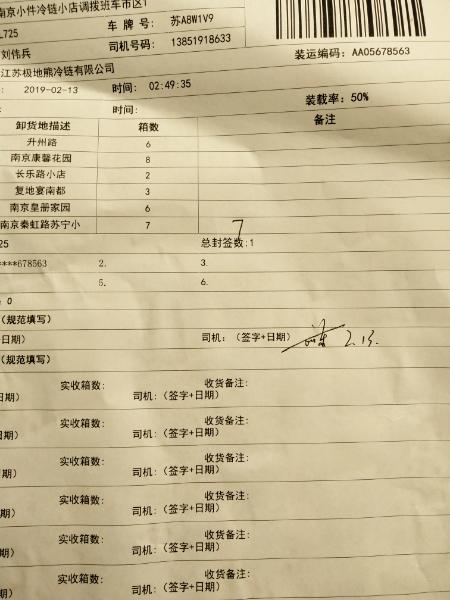 南京小件冷链小店调拨班车市区1
L725
车 牌 号： 苏A8W1V9
刘伟兵
司机号码： 13851918633
装运编码：AA05678563
江苏极地熊冷链有限公司
： 2019-02-13 时间： 02:49:35
装载率：50%
： 时间：
卸货地描述 箱数 备注
升州路 6
南京康馨花园 8
长乐路小店 2
复地宴南都 3
南京皇册家园 6
南京秦虹路苏宁小 7
7
25 总封签数:1
****678563 2. 3.
5. 6.
：0
（规范填写）
+日期） 司机：（签字+日期） 2.13.
（规范填写）
实收箱数： 收货备注：
日期） 司机：（签字+日期）
实收箱数： 收货备注：
日期） 司机：（签字+日期）
实收箱数： 收货备注：
期） 司机：（签字+日期）
实收箱数： 收货备注：
期） 司机：（签字+日期）
实收箱数： 收货备注：
期） 司机：（签字+日期）
实收箱数： 收货备注：
司机：（签字+日期）